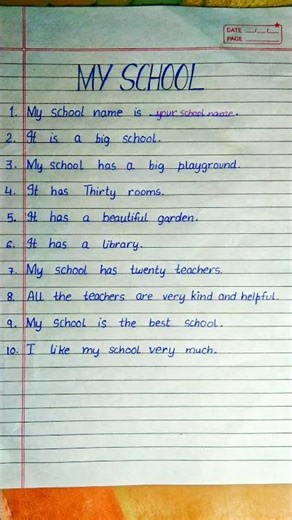 DATE __/__/__
PAGE
MY SCHOOL
1. My school name is your school name.
2. It is a big school.
3. My school has a big playground.
4. It has Thirty rooms.
5. It has a beautiful garden.
6. It has a library.
7. My school has twenty teachers.
8. All the teachers are very kind and helpful.
9. My school is the best school.
10. I like my school very much.